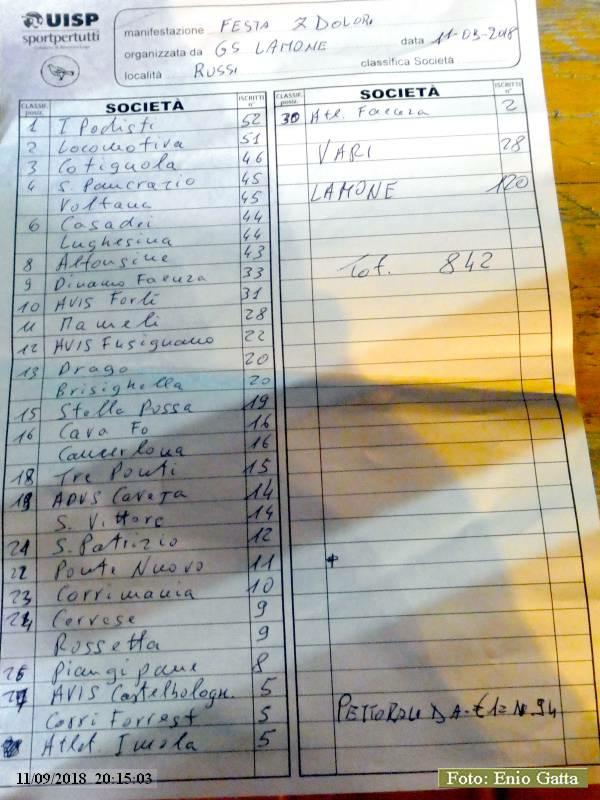 UISP
sportpertutti
manifestazione FESTA 7 DOLORI
organizzata da GS LAMONE data 11-09-2018
località RUSSI classifica Società
CLASSIF. posiz. SOCIETÀ ISCRITTI n°
1 I Podisti 52
2 Locomotiva 51
3 Cotignola 46
4 S. Pancrazio 45
Voltana 45
6 Casadei 44
Lughesina 44
8 Alfonsine 43
9 Dinamo Faenza 33
10 AVIS Forlì 31
11 Mameli 28
12 AVIS Fusignano 22
13 Drago 20
Brisighella 20
15 Stella Rossa 19
16 Cava Fo 16
Caveriona 16
18 Tre Ponti 15
19 ADVS Cavera 14
S. Vittore 14
21 S. Patrizio 12
22 Ponte Nuovo 11
23 Corrimania 10
24 Cervese 9
Rossetta 9
26 Piangipane 8
27 AVIS Castelbologn. 5
Corri Forrest 5
Atlet. Imola 5
CLASSIF. posiz. SOCIETÀ ISCRITTI n°
30 Atl. Faenza 2
VARI 28
LAMONE 120
Tot. 842
PETTORALI DA €1= N° 94
11/09/2018 20:15:03
Foto: Enio Gatta